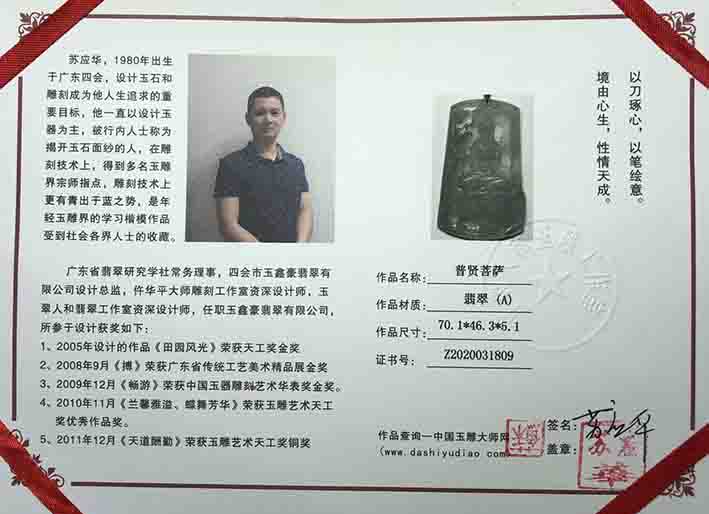 苏应华，1980年出生
于广东四会，设计玉石和
雕刻成为他人生追求的重
要目标，他一直以设计玉
器为主，被行内人士称为
揭开玉石面纱的人，在雕
刻技术上，得到多名玉雕
界宗师指点，雕刻技术上
更有青出于蓝之势，是年
轻玉雕界的学习楷模作品
受到社会各界人士的收藏。
广东省翡翠研究学社常务理事，四会市玉鑫豪翡翠有
限公司设计总监，仵华平大师雕刻工作室资深设计师，玉
翠人和翡翠工作室资深设计师，任职玉鑫豪翡翠有限公司，
所参于设计获奖如下：
1、2005年设计的作品《田园风光》荣获天工奖金奖
2、2008年9月《搏》荣获广东省传统工艺美术精品展金奖
3、2009年12月《畅游》荣获中国玉器雕刻艺术华表奖金奖。
4、2010年11月《兰馨雅溢、蝶舞芳华》荣获玉雕艺术天工
奖优秀作品奖。
5、2011年12月《天道酬勤》荣获玉雕艺术天工奖铜奖
以刀琢心，以笔绘意。
境由心生，性情天成。
作品名称：普贤菩萨
作品材质：翡翠（A）
作品尺寸：70.1*46.3*5.1
证书号：Z2020031809
作品查询—中国玉雕大师网
(www.dashiyudiao.com)
签名：苏应华
盖章：